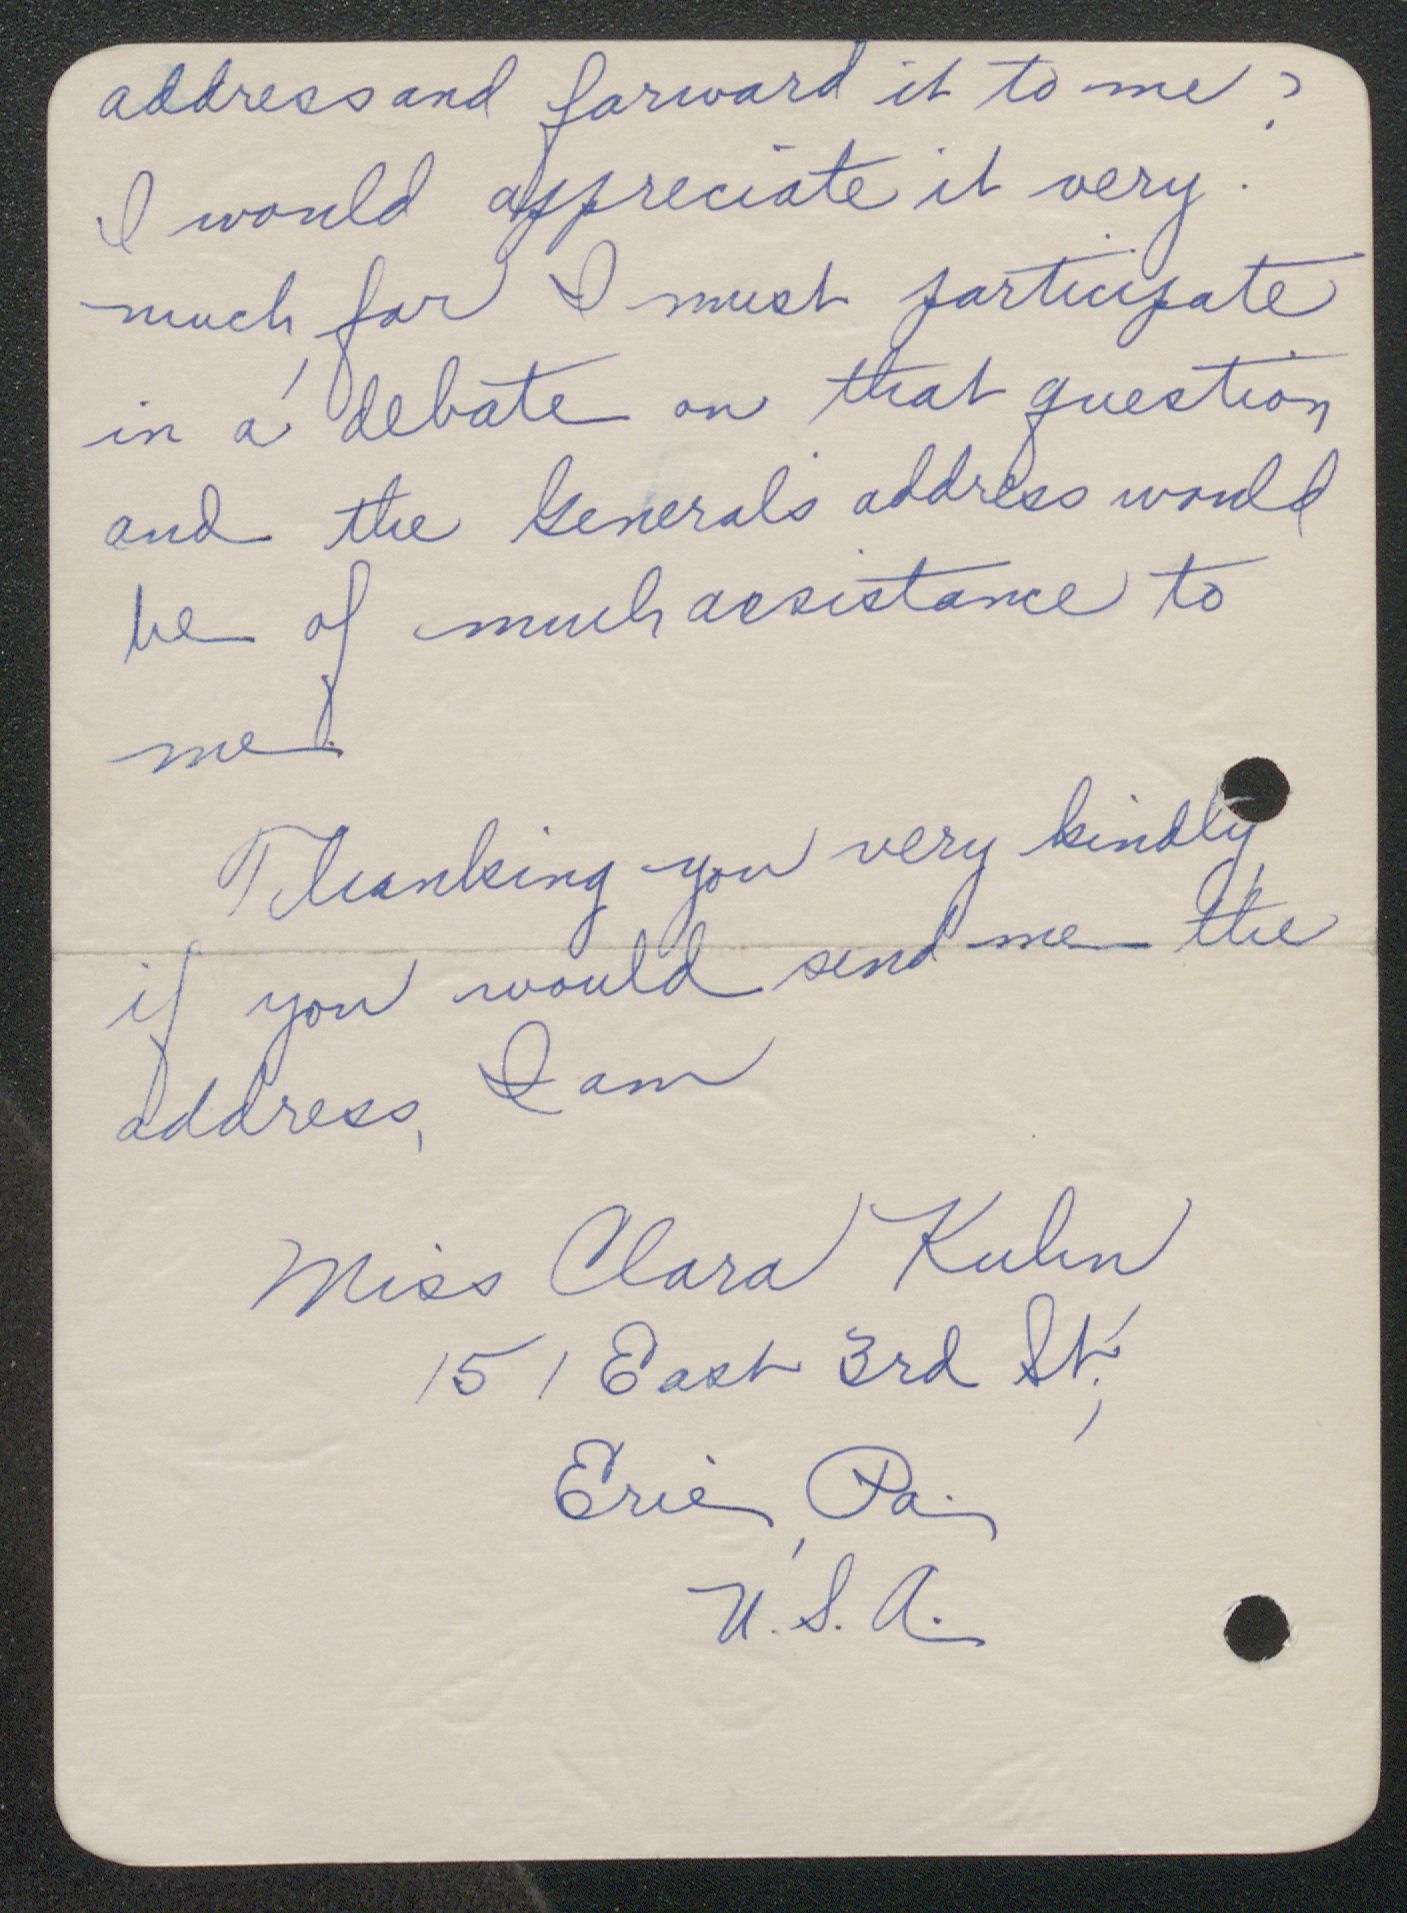 address and forward it to me?
I would appreciate it very
much, for I must participate
in a debate on that question
and the General's address would
be of much assistance to
me.
Thanking you very kindly,
if you would send me the
address, I am
Miss Clara Kuhn
151 East 3rd St.,
Erie, Pa.,
U.S.A.